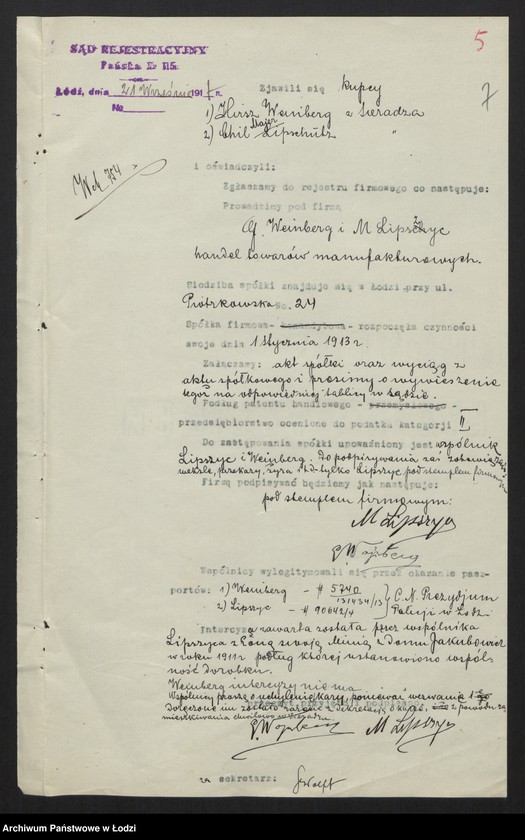 5
SĄD REJESTRACYJNY
Pańska № 115.
Łódź, dnia 21 Wrześnie 191 r.
№
7
Zjawili się kupcy
1) Hirsz Weinberg z Sieradza
2) Chil Majer Lipschütz "
W.A. 754
i oświadczyli:
Zgłaczamy do rejestru firmowego co następuje:
Prowadzimy pod firmą
G. Weinberg i M Lipszyc
handel towarów manufakturowych.
Siedziba spółki znajduje się w Łodzi przy ul.
Piotrkowska No. 24
Spółka firmowa - komandytowa - rozpoczęła czynności
swoje dnia 1 Stycznia 1913 r.
Załączamy: akt spółki oraz wyciąg z
aktu spółkowego i prosimy o wywieszenie
tegoż na odpowiedniej tablicy w sądzie.
Podług patentu handlowego - przemysłowego -
przedsiębiorstwo ocenione do podatku kategorji II
Do zastępowania spółki upoważniony jest wspólnik
Lipszyc i Weinberg. Do podpisywania zaś zobowiązań
weksle, przekazy, żyra itd. tylko Lipszyc pod stemplem firmowym
Firmę podpisywać będziemy jak następuje:
pod stemplem firmowym:
M Lipszyc
Wspólnicy wylegitymowali się przez okazanie pasz-
portów: 1) Weinberg - # 5740
13/434/13
2) Lipszyc - # 90642/4
C. N. Prezydjum
Policji w Łodzi
Intercyza zawarta została przez wspólnika
Lipszyca z żoną swoją Minią z domu Jakubowicz
w roku 1911 r. podług której ustanowiono wspól-
ność dorobku.
Weinberg intercyzy nie ma
Wspólnicy proszą o uchylenie kary, ponieważ wezwanie
doręczone im zostało razem z dekretem o karze z powodu za-
mieszkiwania chwilowo w Sieradzu
M Lipszyc
za sekretarz:
Archiwum Państwowe w Łodzi